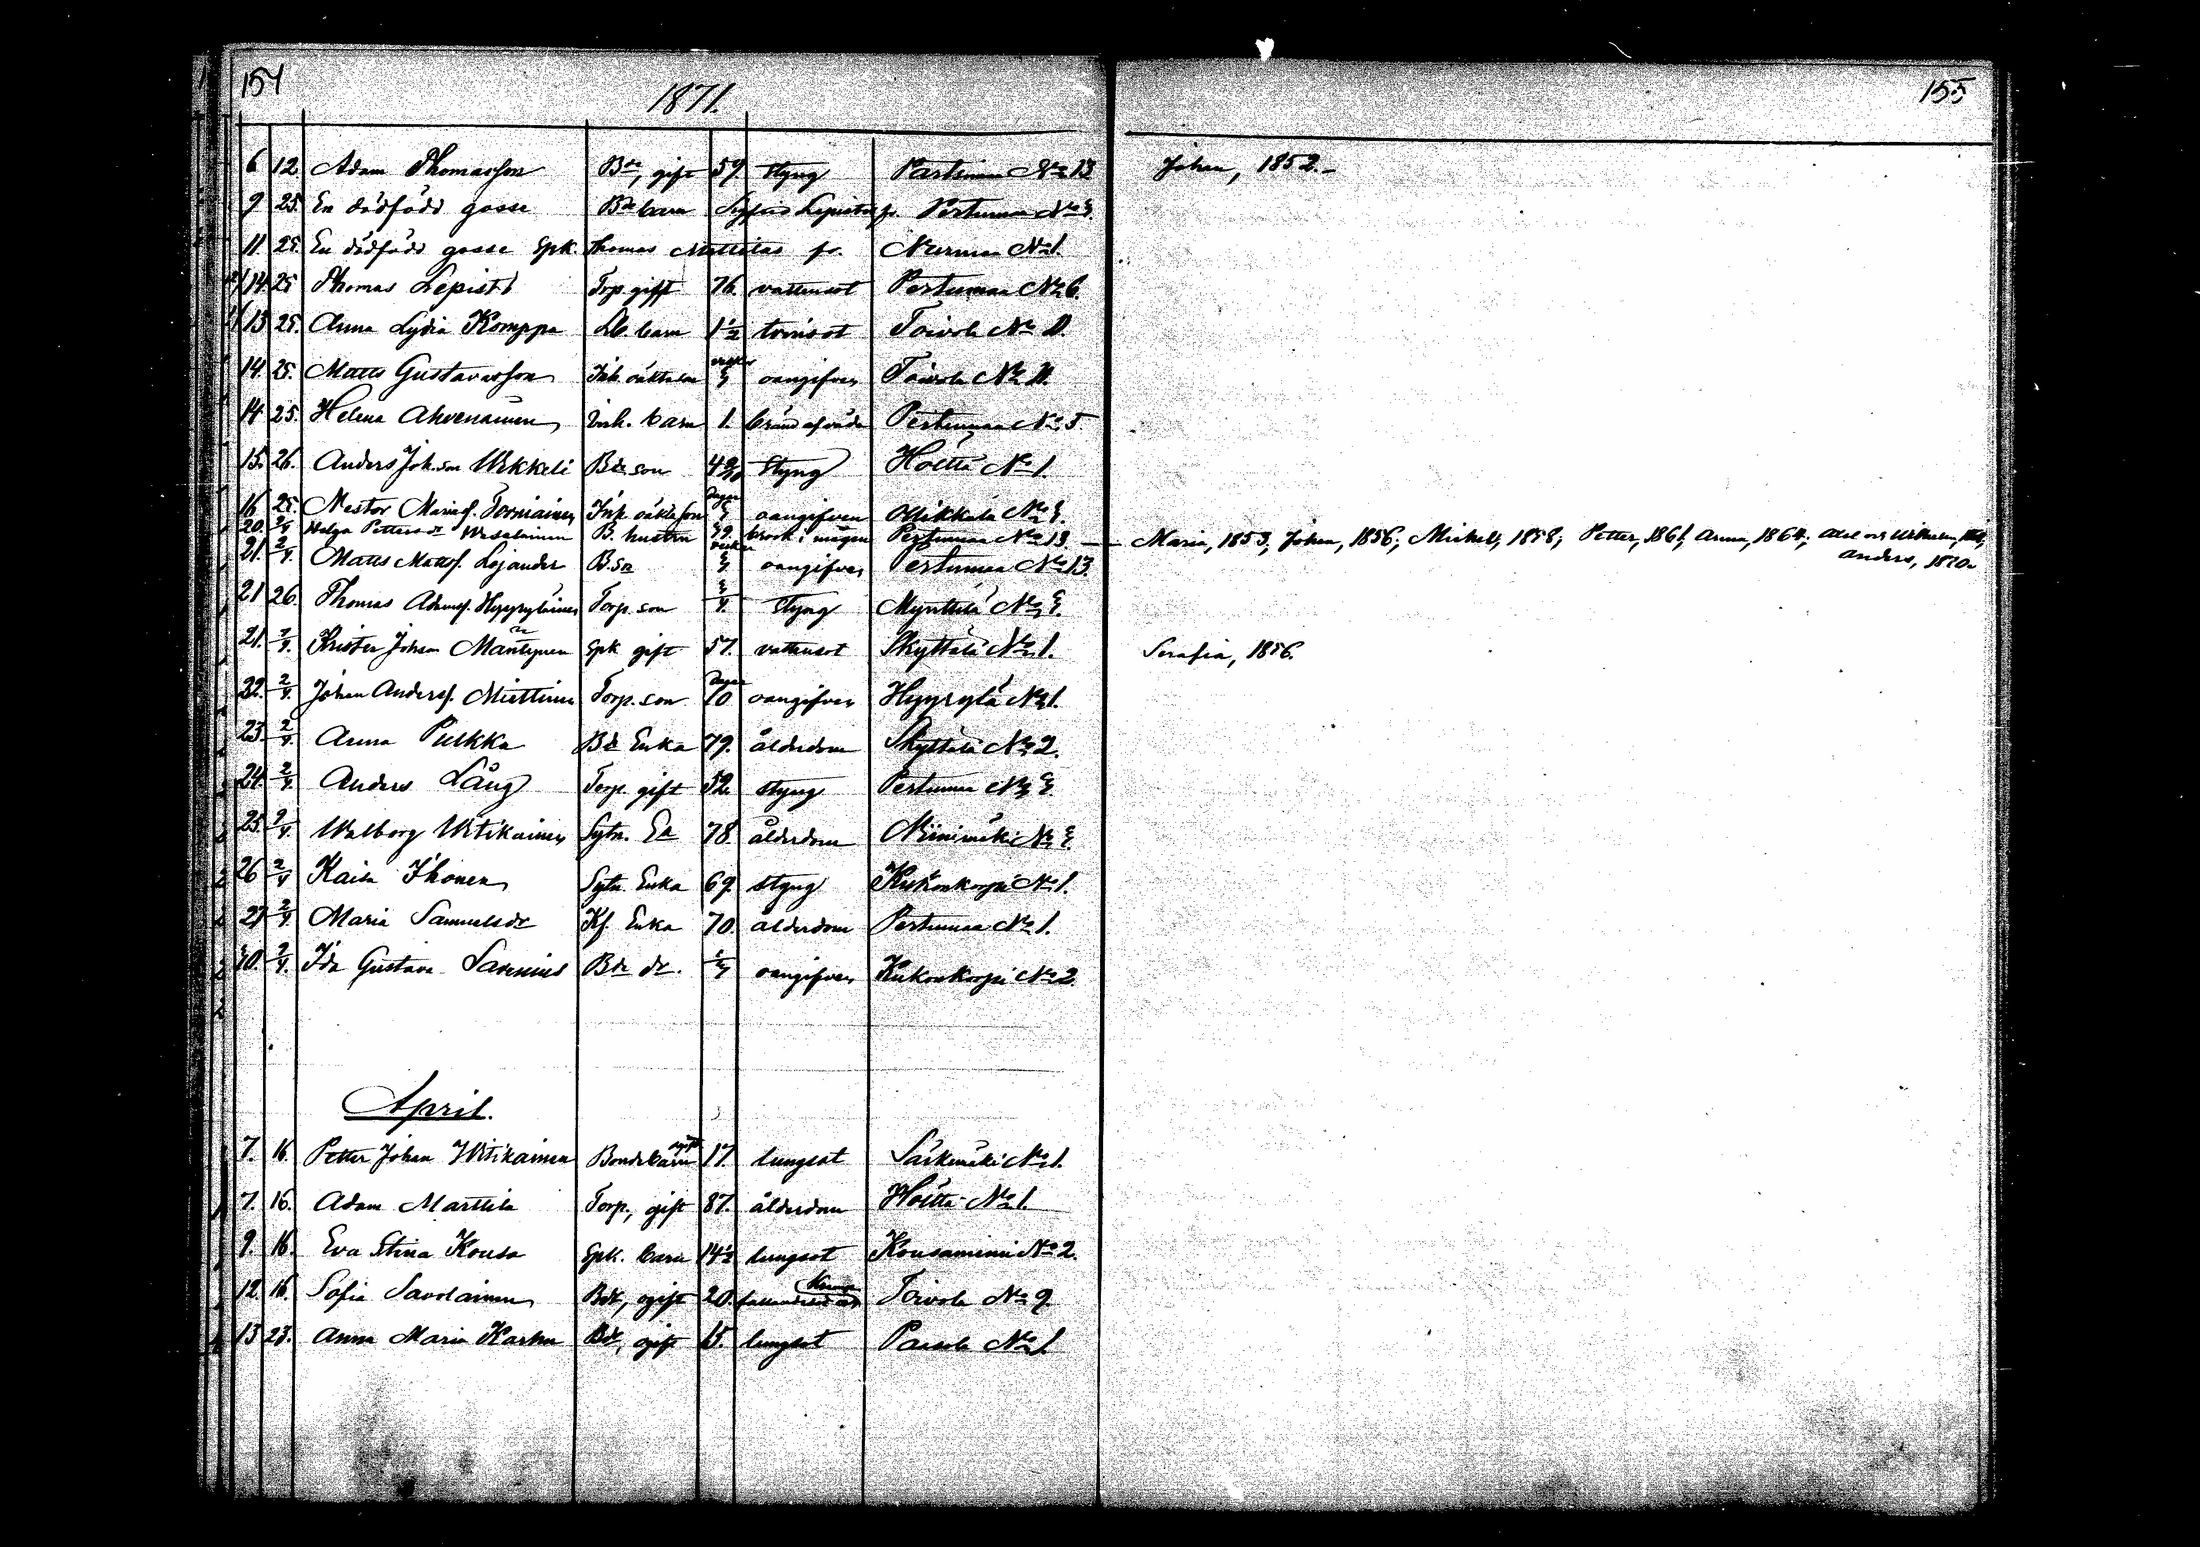 154
1871.
155
6 12. Adam Thomasson Bde, gift 59. styng Pertunmaa No 13 Johan, 1852.
9 25. En dödfödd gosse Bde barn Sigfrid Lepistös fr. Pertunmaa No
11. 25. En dödfödd gosse Spk. Thomas Mattilas fr. Nurmaa No 1.
14 25 Thomas Lepistö Torp gift 76. vattusot Pertunmaa No 6.
13 25. Anna Lydia Komppa barn 1½ tvinsot Toivola No 11.
14. 25. Matts Gustavsson Inh. oäkta veckor oangifven Toivola No 11.
14 25. Helena Ahvenainen Inh. barn 1. Pertunmaa No 5
15. 26. Anders Joh.son Wekkeli Bde son styng Hölttä No 1.
16 25. Nestor Mariaf. Torniainen Inh. oäkta son dagar oangifven Mikkala No
20. 2/4 Helga Pettersdr Wesalainen B. hustru 39. brock i magen Pertunmaa No 13. Maria, 1853; Johan, 1856; Mickel, 1858; Petter, 1861; Anna, 1864;
Anders, 1870.
21. 2/4. Matts Mattsf. Lojander B. sn veckor oangifven Pertunmaa No 13.
21 26. Thomas Adamsf. Hyyryläinen Torp. son 3/4. styng Mynttilä No
21. 2/4. Krister Johan Mäntynen Spk gift 57. vattusot Skyttälä No 1. Serafia, 1856.
22. 2/4. Johan Andersf. Miettinen Torp. son dagar 10 oangifven Hyyrylä No 1.
23. 2/4. Anna Pulkka Bde Enka 79. ålderdom Skyttälä No 2.
24. 2/4. Anders Lång Torp. gift 52. styng Pertunmaa No
25. 2/4. Walborg Witikainen Sytn. Ea 78. ålderdom Niinimäki No
26 2/4 Kaisa Ihonen Sytn. Enka 69. styng Kuhonkorpi No 1.
27 2/4. Maria Samuelsdr Kf. Enka 70. ålderdom Pertunmaa No 1.
30. 2/4. Ida Gustava Savenius Bde dr. oangifven Kuhonkorpi No 2.
April.
7. 16. Petter Johan Witikainen Bondebarn ogift 17. lungsot Särkimäki No 1.
7. 16. Adam Marttila Torp., gift 87. ålderdom Hölttä No 1.
9. 16. Eva Stina Kousa Spk. barn 14½ lungsot Kousaniemi No 2.
12. 16. Sofia Savolainen Bdr, ogift 20. fallandesot Toivola No 9.
13 23. Anna Maria Karhu Bdr, ogift 15. lungsot Parsola No 1